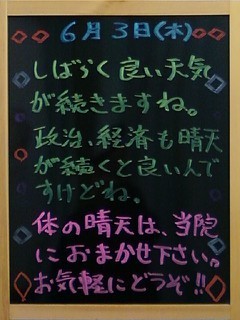 6月3日(木)
しばらく良い天気
が続きますね。
政治、経済も晴天
が続くと良いんで
すけどね。
体の晴天は、当院
におまかせ下さい。
お気軽にどうぞ!!